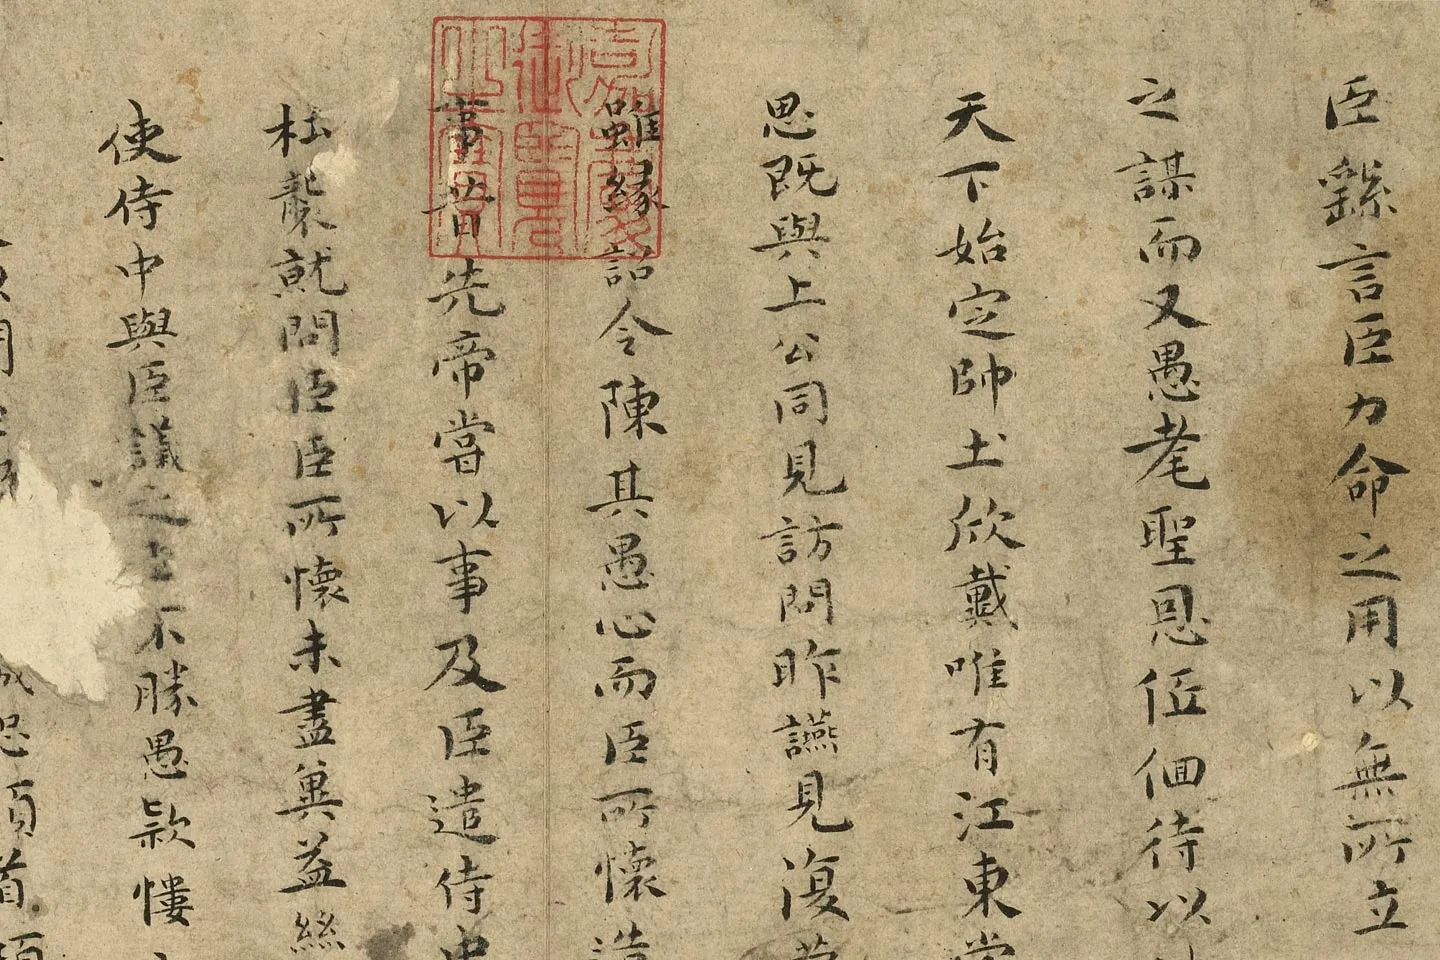 臣繇言臣力命之用以無所立
之謀而又愚耄聖恩伍佪待以
天下始定帥土欣戴唯有江東當
思既與上公同見訪問昨讌見復蒙
雖緣詔令陳其愚心而臣所懷造
事昔先帝嘗以事及臣遣侍中
杜襲就問臣臣所懷未盡冀益絲
使侍中與臣議之臣不勝愚款慺
頓首頓